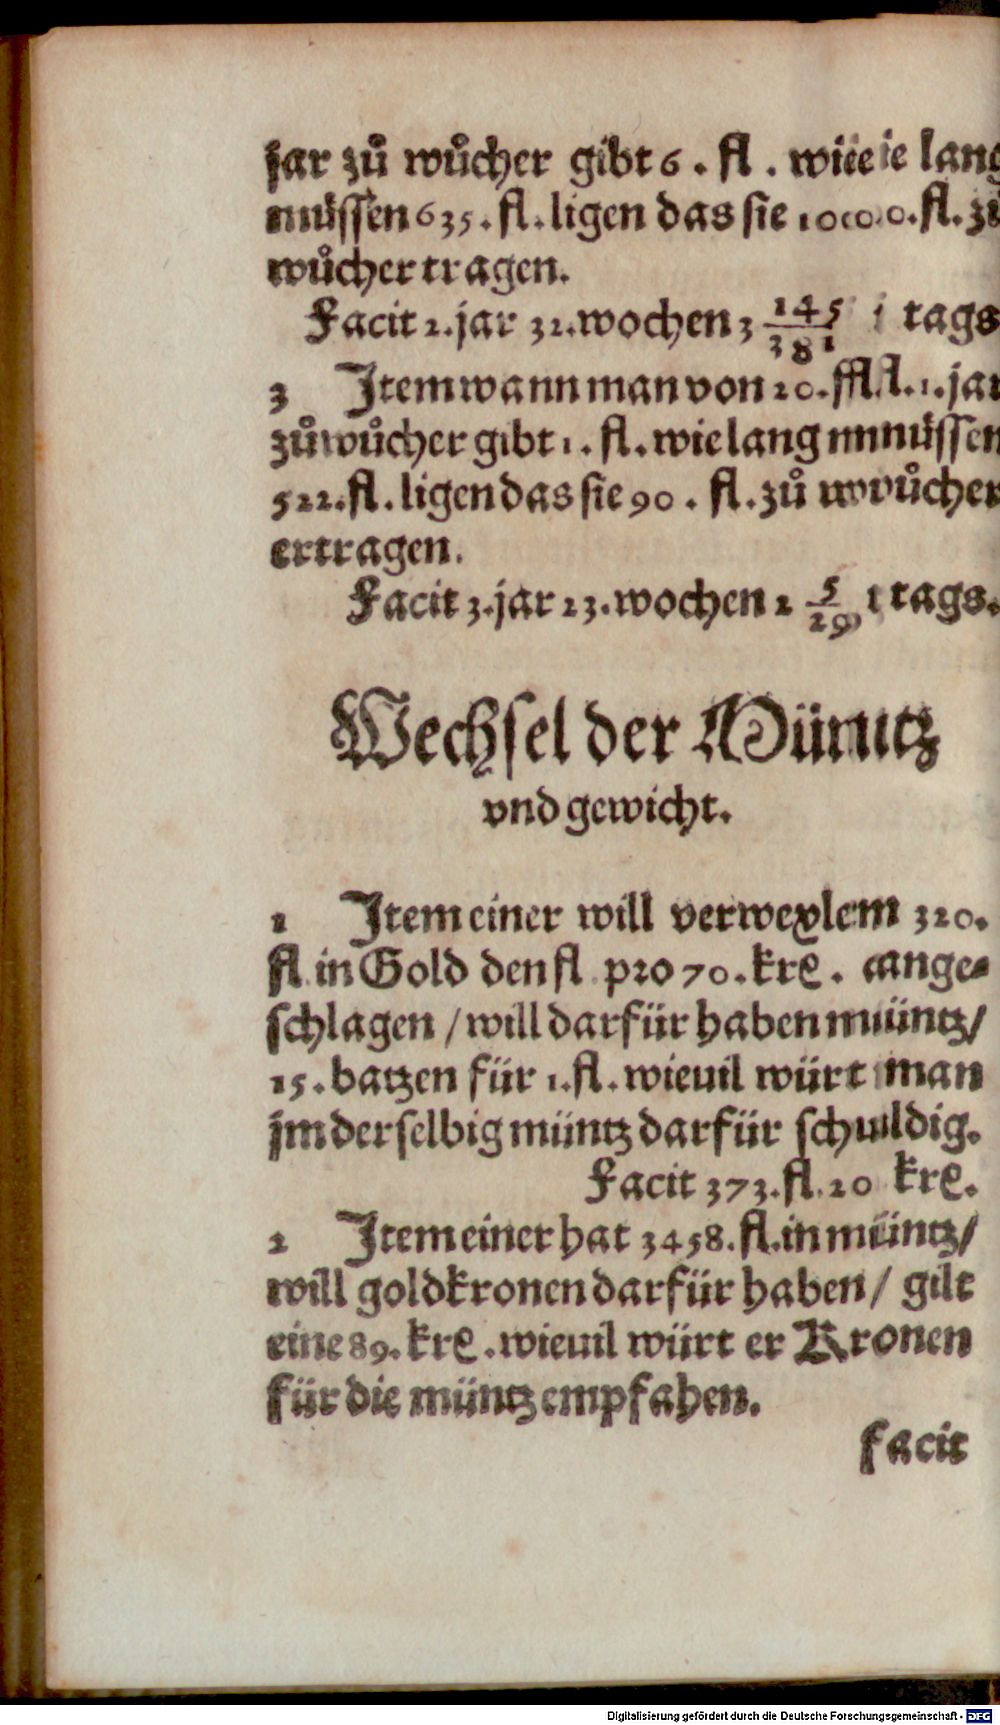 jar zů wůcher gibt 6. fl. wie ie lang
müssen 635. fl. ligen das sie 1000. fl. zů
wůcher tragen.
Facit 2. jar 32. wochen 3 145/381 tags
3 Item wann man von 20. fl. 1. jar
zů wůcher gibt 1. fl. wie lang müssen
522. fl. ligen das sie 90. fl. zů wůcher
ertragen.
Facit 3. jar 23. wochen 2 5/29 tags.
Wechsel der Müntz
vnd gewicht.
1 Item einer will verwexlem 320.
fl. in Gold den fl pro 70. kre. ange-
schlagen / will darfür haben müntz /
15. batzen für 1. fl. wieuil würt man
jm derselbig müntz darfür schuldig.
Facit 373. fl. 20 kre.
2 Item einer hat 3458. fl. in müntz /
will goldkronen darfür haben / gilt
eine 89. kre. wieuil würt er Kronen
für die müntz empfahen.
facit
Digitalisierung gefördert durch die Deutsche Forschungsgemeinschaft - DFG